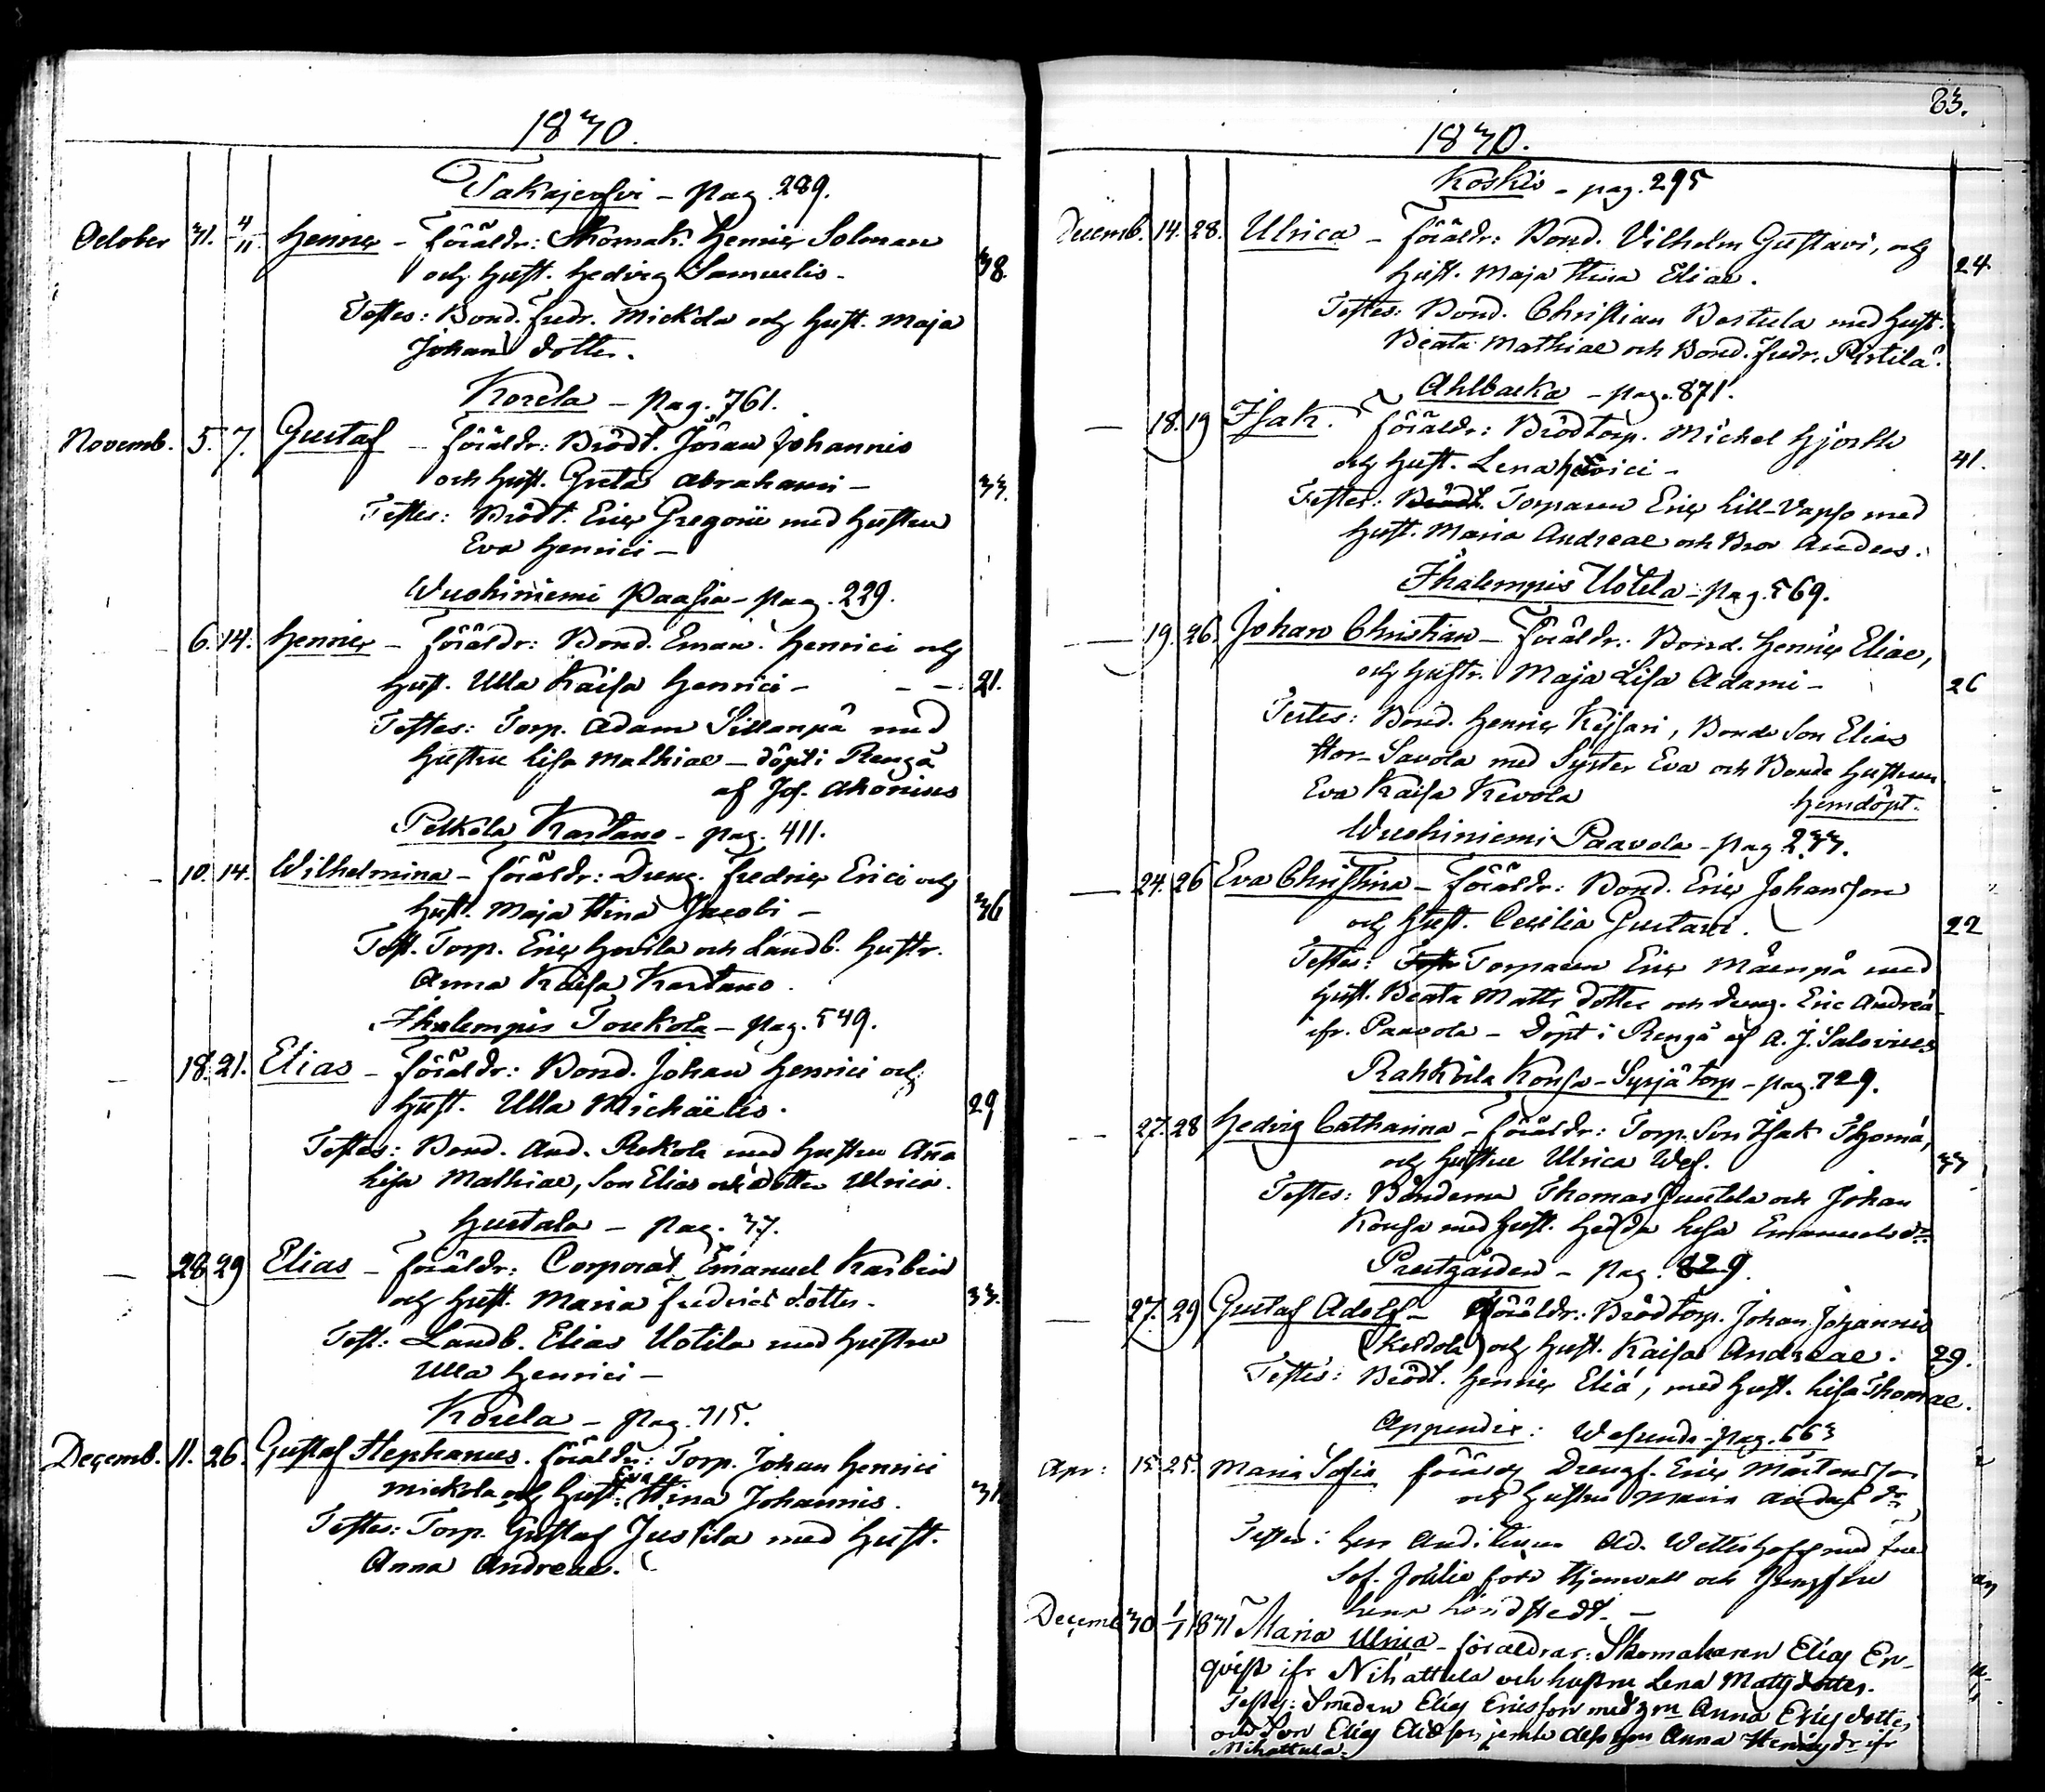 1870.
Takajerfvi - pag. 289.
October 31. 4/11. Henric - Föräldr: Skomak. Henric Soloman
och Hust. Hedvig Samuelis - 38.
Testes: Bond. Fredr. Mickola och Hust. Maja
Johans dotter.
Korela - Pag. 761.
Novemb. 5. 7. Gustaf - Föräldr: Brödt. Jöran Johannis
och Hust. Greta Abrahami - 33.
Testes: Brödt. Eric Gregorii med Hustru
Eva Henrici -
Wuohiniemi Paafia - pag. 229.
6. 14. Henric - Föräldr: Bond. Eman. Henrici och
Hust. Ulla Kaisa Henrici - - - 21.
Testes: Torp. Adam Sillanpä med
Hustru Lisa Mathiae - döpt i Rengå
af Jos. Ahonius
Pelkola Kartano - pag. 411.
- 10. 14. Wilhelmina - Föräldr: Dreng. Fredric Erici och
Hust. Maja Stina Jacobi - 36
Test. Torp. Eric Hovila och Landb. Hustr.
Anna Kaisa Kartano.
Ihalempis Toukola - pag. 549.
- 18. 21. Elias - Föräldr: Bond. Johan Henrici och
Hust. Ulla Michaëlis. 29
Testes: Bond. And. Rekola med Hustru Aña
Lisa Mathiae, Son Elias och dotter Ulrica.
Hustala - Pag. 37.
- 28 29 Elias - Föräldr: Corporal Emanuel Karbin
och Hust. Maria Fredrics dotter. 33.
Test: Landb. Elias Uotila med Hustru
Ulla Henrici -
Korela - Pag. 715.
Decemb. 11. 26. Gustaf Stephanus. Föräldr: Torp. Johan Henrici
Mickola och Hust: Eva Stina Johannis. 31
Testes: Torp. Gustaf Jussila med Hust.
Anna Andreae.
63.
1870.
Koskis - pag. 295
Decemb. 14. 28. Ulrica - Föräldr: Bond. Vilhelm Gustavi, och
Hust. Maja Stina Eliae. 24.
Testes: Bond. Christian Bertula med Hust.
Beata Mathiae och Bond. Fredr. Pertilä.
Ahlbacka - pag. 871.
- 18. 19 Isak. Föräldr: Brödtorp. Michel Hjorth
och Hust. Lena Henrici - 41.
Testes: Brödt. Torparen Eric Lill-Vapso med
Hust. Maria Andreae och Bror Anders.
Ihalempis Uotela - Pag. 569.
- 19. 26. Johan Christian - Föräldr: Bond. Henric Eliae,
och Hustr. Maja Lisa Adami - 26
Testes: Bond. Henric Keisari, Bonde Son Elias
Stor-Savola med Syster Eva och Bonde Hustrun
Eva Kaisa Kevola Hemdöpt.
Wuohiniemi Paavola - pag 233.
- 24. 26 Eva Christina - Föräldr: Bond. Eric Johansson
och Hust. Cecilia Gustavi. 22
Testes: Torparen Eric Mäenpä med
Hust. Beata Matts dotter och dreng. Eric Andreä
ifr. Paavola - Döpt i Rengå af A. J. Salovius
Rahkoila Konsa - Syrjä torp - pag. 729.
- 27. 28 Hedvig Catharina - Föräldr: Torp. Son Isak Thomä,
och Hustru Ulrica Wes. 33
Testes: Bönderna Thomas Juntola och Johan
Konsa med Hust. Hedda Lisa Emanuels dr
Prestgården - Pag. 829.
- 27. 29 Gustaf Adolf - Föräldr: Brödtorp. Johan Johannis
(Keidola) och Hust. Kaisa Andreae. 29.
Testes: Brödt. Henric Eliä, med Hust. Lisa Thomae.
Appendix: Wesunda - Pag. 663
Apr: 15. 25. Maria Sofia Föräldr Drengs. Eric Mårtensson
och Hustru Maria Anders dr
Testes: Herr Auditeuren Ad. Wetterhoff med Fru
Sof. Julie född Stjernvall och Jungfru
Lena Lindstedt. -
Decemb 30 1/1 1871 Maria Ulrica - föräldrar: Skomakaren Elias En-
qvist ifr Nihattula och hustru Lena Matts dotter.
Testes: Smeden Elias Ericsson med hm Anna Erics dotter
och Son Elias Eliesson jemte dess hm Anna Henricsdr ifr
Nihattula.